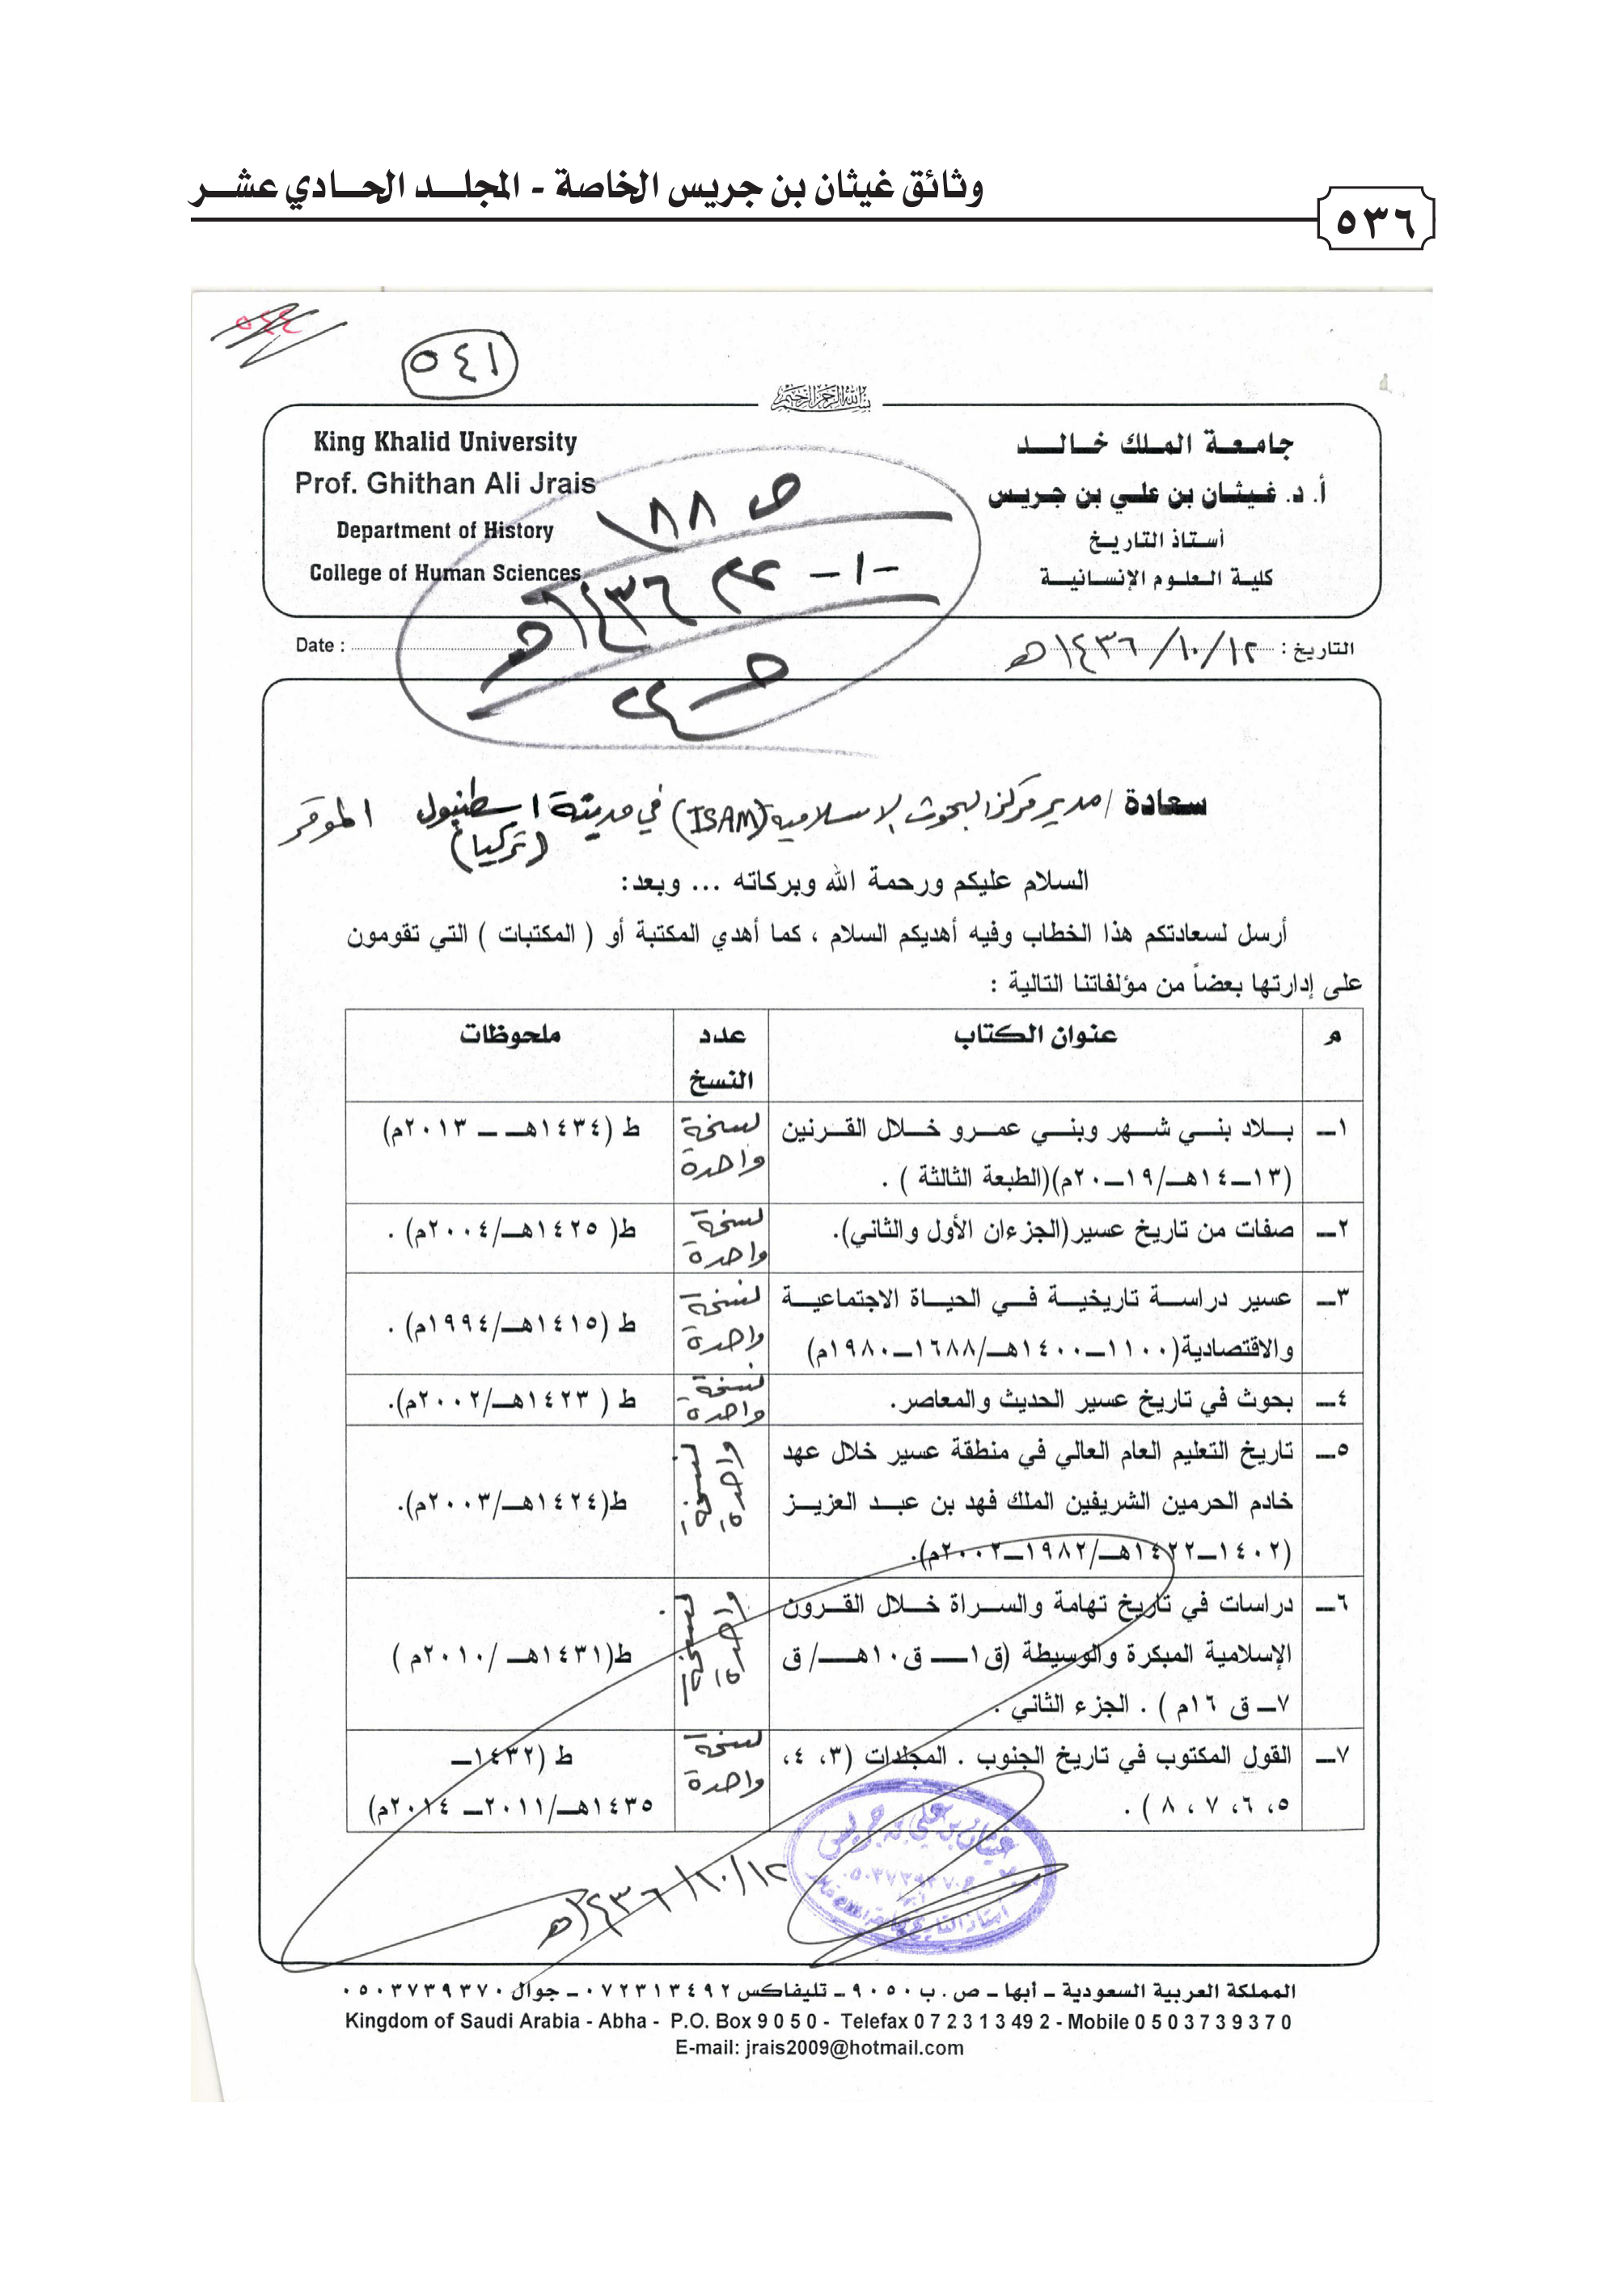 وثائق غيثان بن جريس الخاصة - المجلـــد الحـــادي عشـــر
٥٣٦
٥٤٤
٥٤١
بسم الله الرحمن الرحيم
جامعة الملك خالد
أ. د. غيثان بن علي بن جريس
أستاذ التاريخ
كلية العلوم الإنسانية
King Khalid University
Prof. Ghithan Ali Jrais
Department of History
College of Human Sciences
ص ١٨٨
-١-
١٤٣٦هـ
التاريخ : ١٢/١٠/١٤٣٦هـ
Date :
سعادة / مدير مركز البحوث الإسلامية (ISAM) في مدينة اسطنبول الموقر
(تركيا)
السلام عليكم ورحمة الله وبركاته ... وبعد:
أرسل لسعادتكم هذا الخطاب وفيه أهديكم السلام ، كما أهدي المكتبة أو ( المكتبات ) التي تقومون
على إدارتها بعضاً من مؤلفاتنا التالية :
م عنوان الكتاب عدد النسخ ملحوظات
١ــ بـلاد بنـي شـهر وبنـي عمـرو خـلال القـرنين نسخة ط (١٤٣٤هـ ــ ٢٠١٣م)
(١٣ــ١٤هـ/١٩ــ٢٠م)(الطبعة الثالثة ) . واحدة
٢ــ صفات من تاريخ عسير(الجزءان الأول والثاني). نسخة واحدة ط( ١٤٢٥هـ/٢٠٠٤م) .
٣ــ عسير دراسـة تاريخيـة فـي الحيـاة الاجتماعيـة نسخة ط (١٤١٥هـ/١٩٩٤م) .
والاقتصادية(١١٠٠ــ١٤٠٠هـ/١٦٨٨ــ١٩٨٠م) واحدة
٤ــ بحوث في تاريخ عسير الحديث والمعاصر. نسخة واحدة ط ( ١٤٢٣هـ/٢٠٠٢م).
٥ــ تاريخ التعليم العام العالي في منطقة عسير خلال عهد
خادم الحرمين الشريفين الملك فهد بن عبـد العزيـز نسخة واحدة ط(١٤٢٤هـ/٢٠٠٣م).
(١٤٠٢ــ١٤٢٢هـ/١٩٨٢ــ٢٠٠٢م).
٦ــ دراسات في تاريخ تهامة والسـراة خـلال القـرون
الإسلامية المبكرة والوسيطة (ق١ــ ق١٠هـ/ ق نسخة واحدة ط(١٤٣١هـ /٢٠١٠م )
٧ــ ق ١٦م ) . الجزء الثاني .
٧ــ القول المكتوب في تاريخ الجنوب . المجلدات (٣، ٤، نسخة ط (١٤٣٢ــ
٥، ٦، ٧ ، ٨ ) . واحدة ١٤٣٥هـ/٢٠١١ــ ٢٠١٤م)
غيثان بن علي بن جريس
١٢/١٠/١٤٣٦هـ
المملكة العربية السعودية ــ أبها ــ ص . ب ٩٠٥٠ ــ تليفاكس ٠٧٢٣١٣٤٩٢ ــ جوال ٠٥٠٣٧٣٩٣٧٠
Kingdom of Saudi Arabia - Abha - P.O. Box 9 0 5 0 - Telefax 0 7 2 3 1 3 49 2 - Mobile 0 5 0 3 7 3 9 3 7 0
E-mail: jrais2009@hotmail.com